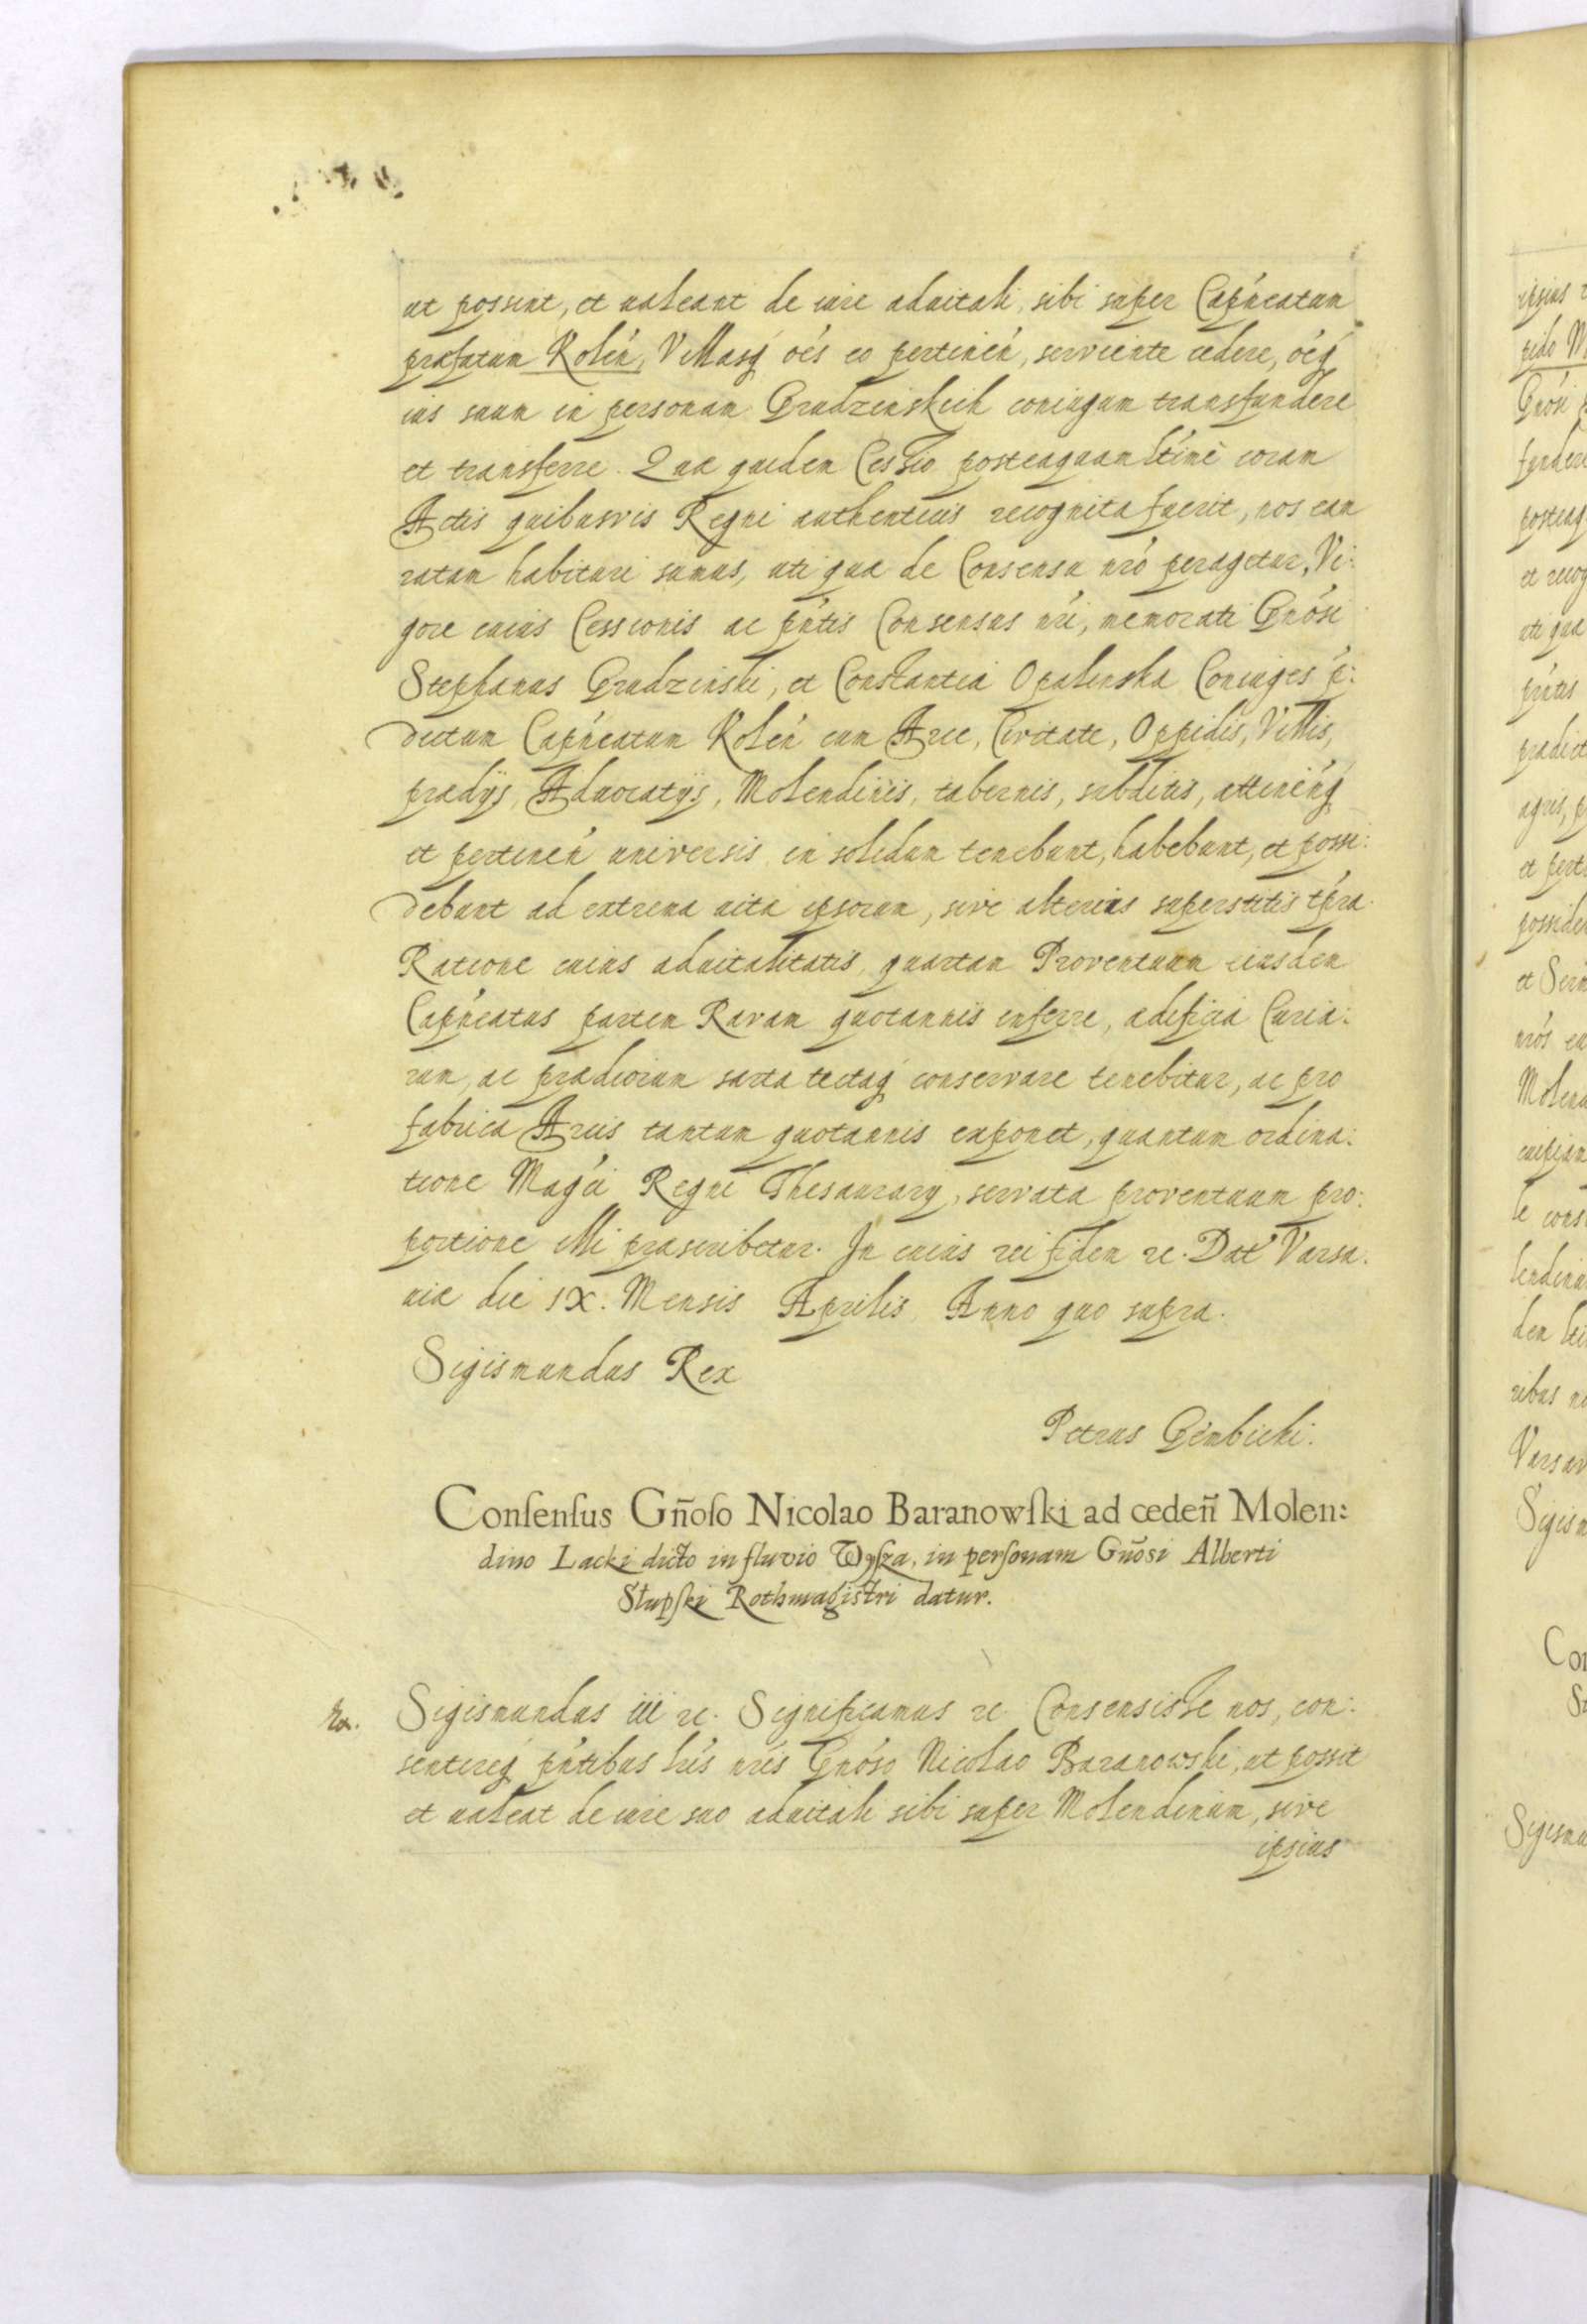 ut possint, et valeant de iure aduitali, sibi super Capńeatum
præfatum Kolen̄, Villasq́ oēs eo pertineń, serviente cedere, oēq́
ius suum in personam Grudzinskich coniugum transfundere
et transferre. Quæ quidem Cessio posteaquam ltīmè coram
Actis quibusvis Regni authenticis recognita fuerit, nos eam
ratam habituri sumus, uti quæ de Consensu nr̄o peragetur, Vi:
gore cuius Cessionis ac pn̄tis Consensus nr̄i, memorati Gnōsi
Stephanus Grudzinski, et Constantia Opalinska Coniuges p̄:
dictum Capńeatum Koleń cum Arce, Civitate, Oppidis, Villis,
prædijs, Aduocatijs, Molendinis, tabernis, subditis, attineńq́
et pertineń universis in solidum tenebunt, habebunt, et possi:
debunt ad extrema vitæ ipsorum, sive alterius superstitis tp̄ra.
Ratione cuius aduitalitatis, quartam Proventuum eiusdem
Capńeatus partem Ravam quotannis inferre, ædificia Curia:
rum, ac prædiorum sarta tectaq́ conservare tenebitur, ac pro
fabrica Arcis tantum quotannis exponet, quantum ordina:
tione Magći Regni Thesaurarij, servata proventuum pro:
portione illi præscribetur. In cuius rei fidem ꝛc. Dat́ Varsa:
uiæ die IX. Mensis Aprilis, Anno quo supra.
Sigismundus Rex
Petrus Gembicki.
Consensus Gn̄oso Nicolao Baranowski ad cedeñ Molen:
dino Lacki dicto in fluvio Wysza, in personam Gn̄osi Alberti
Słupski Rothmagistri datur.
Sigismundus iii ꝛc. Significamus ꝛc Consensisse nos, con:
sentireq́ pn̄tibus lr̄is nr̄is Gnōso Nicolao Baranowski, ut possit
et valeat de iure suo aduitali sibi super Molendinum, sive
ipsius